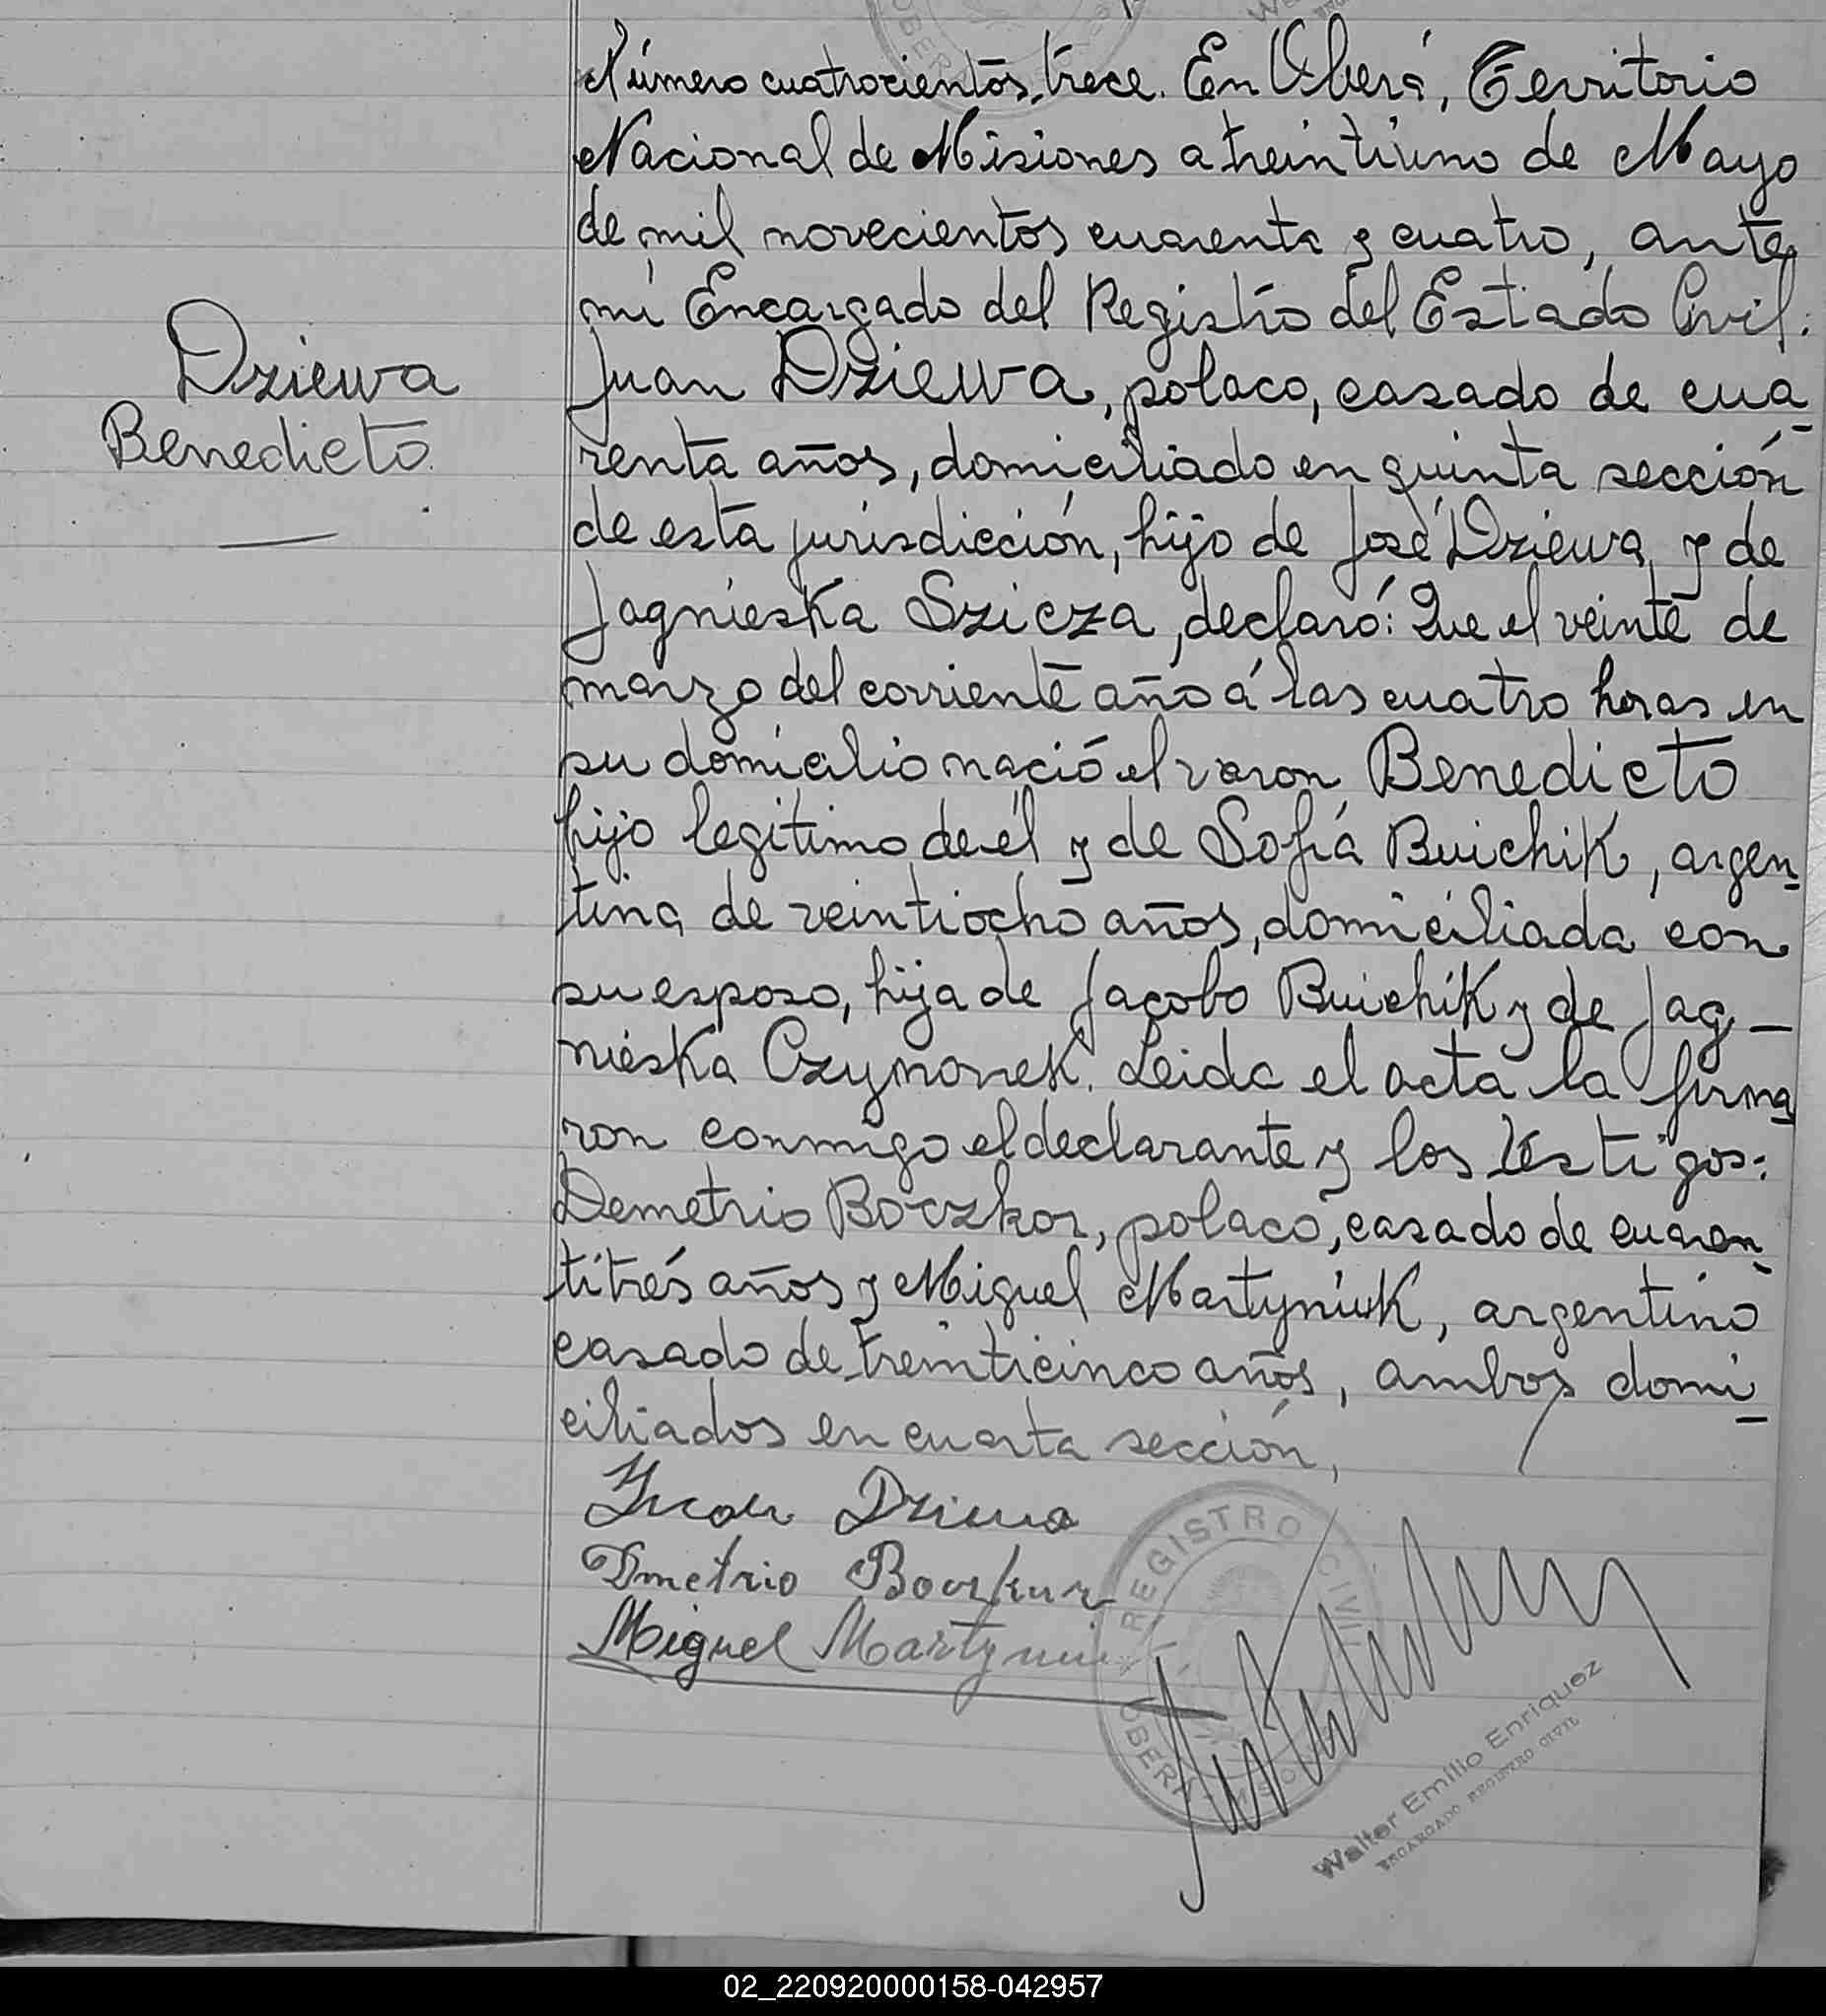 Número cuatrocientos trece. En Oberá, Territorio
Nacional de Misiones a treintiuno de Mayo
de mil novecientos cuarenta y cuatro, ante
mi Encargado del Registro del Estado Civil.
Dziewa
Benedicto
Juan Dziewa, polaco, casado de cua-
renta años, domiciliado en quinta sección
de esta jurisdicción, hijo de José Dziewa y de
Jagnieska Szicza, declaró: Que el veinte de
marzo del corriente año á las cuatro horas en
su domicilio nació el varon Benedicto
hijo legítimo de él y de Sofía Buichik, argen-
tina de veintiocho años, domiciliada con
su esposo, hija de Jacobo Buichik y de Jag-
nieska Czymonek. Leida el acta la firma
ron conmigo el declarante y los testigos:
Demetrio Boczkor, polaco, casado de cuaren-
titrés años y Miguel Martyniuk, argentino
casado de treinticinco años, ambos domi-
ciliados en cuarta sección,
Juan Dziewa
Dmetrio Boczkur
Miguel Martyniu
REGISTRO CIVIL
OBERÁ - MISIONES
Walter Emilio Enriquez
ENCARGADO REGISTRO CIVIL
02_220920000158-042957